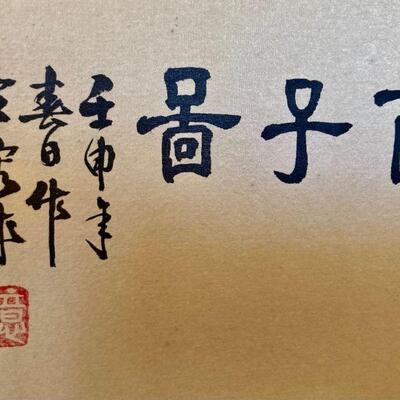 百子啚
壬申年
春日作
意